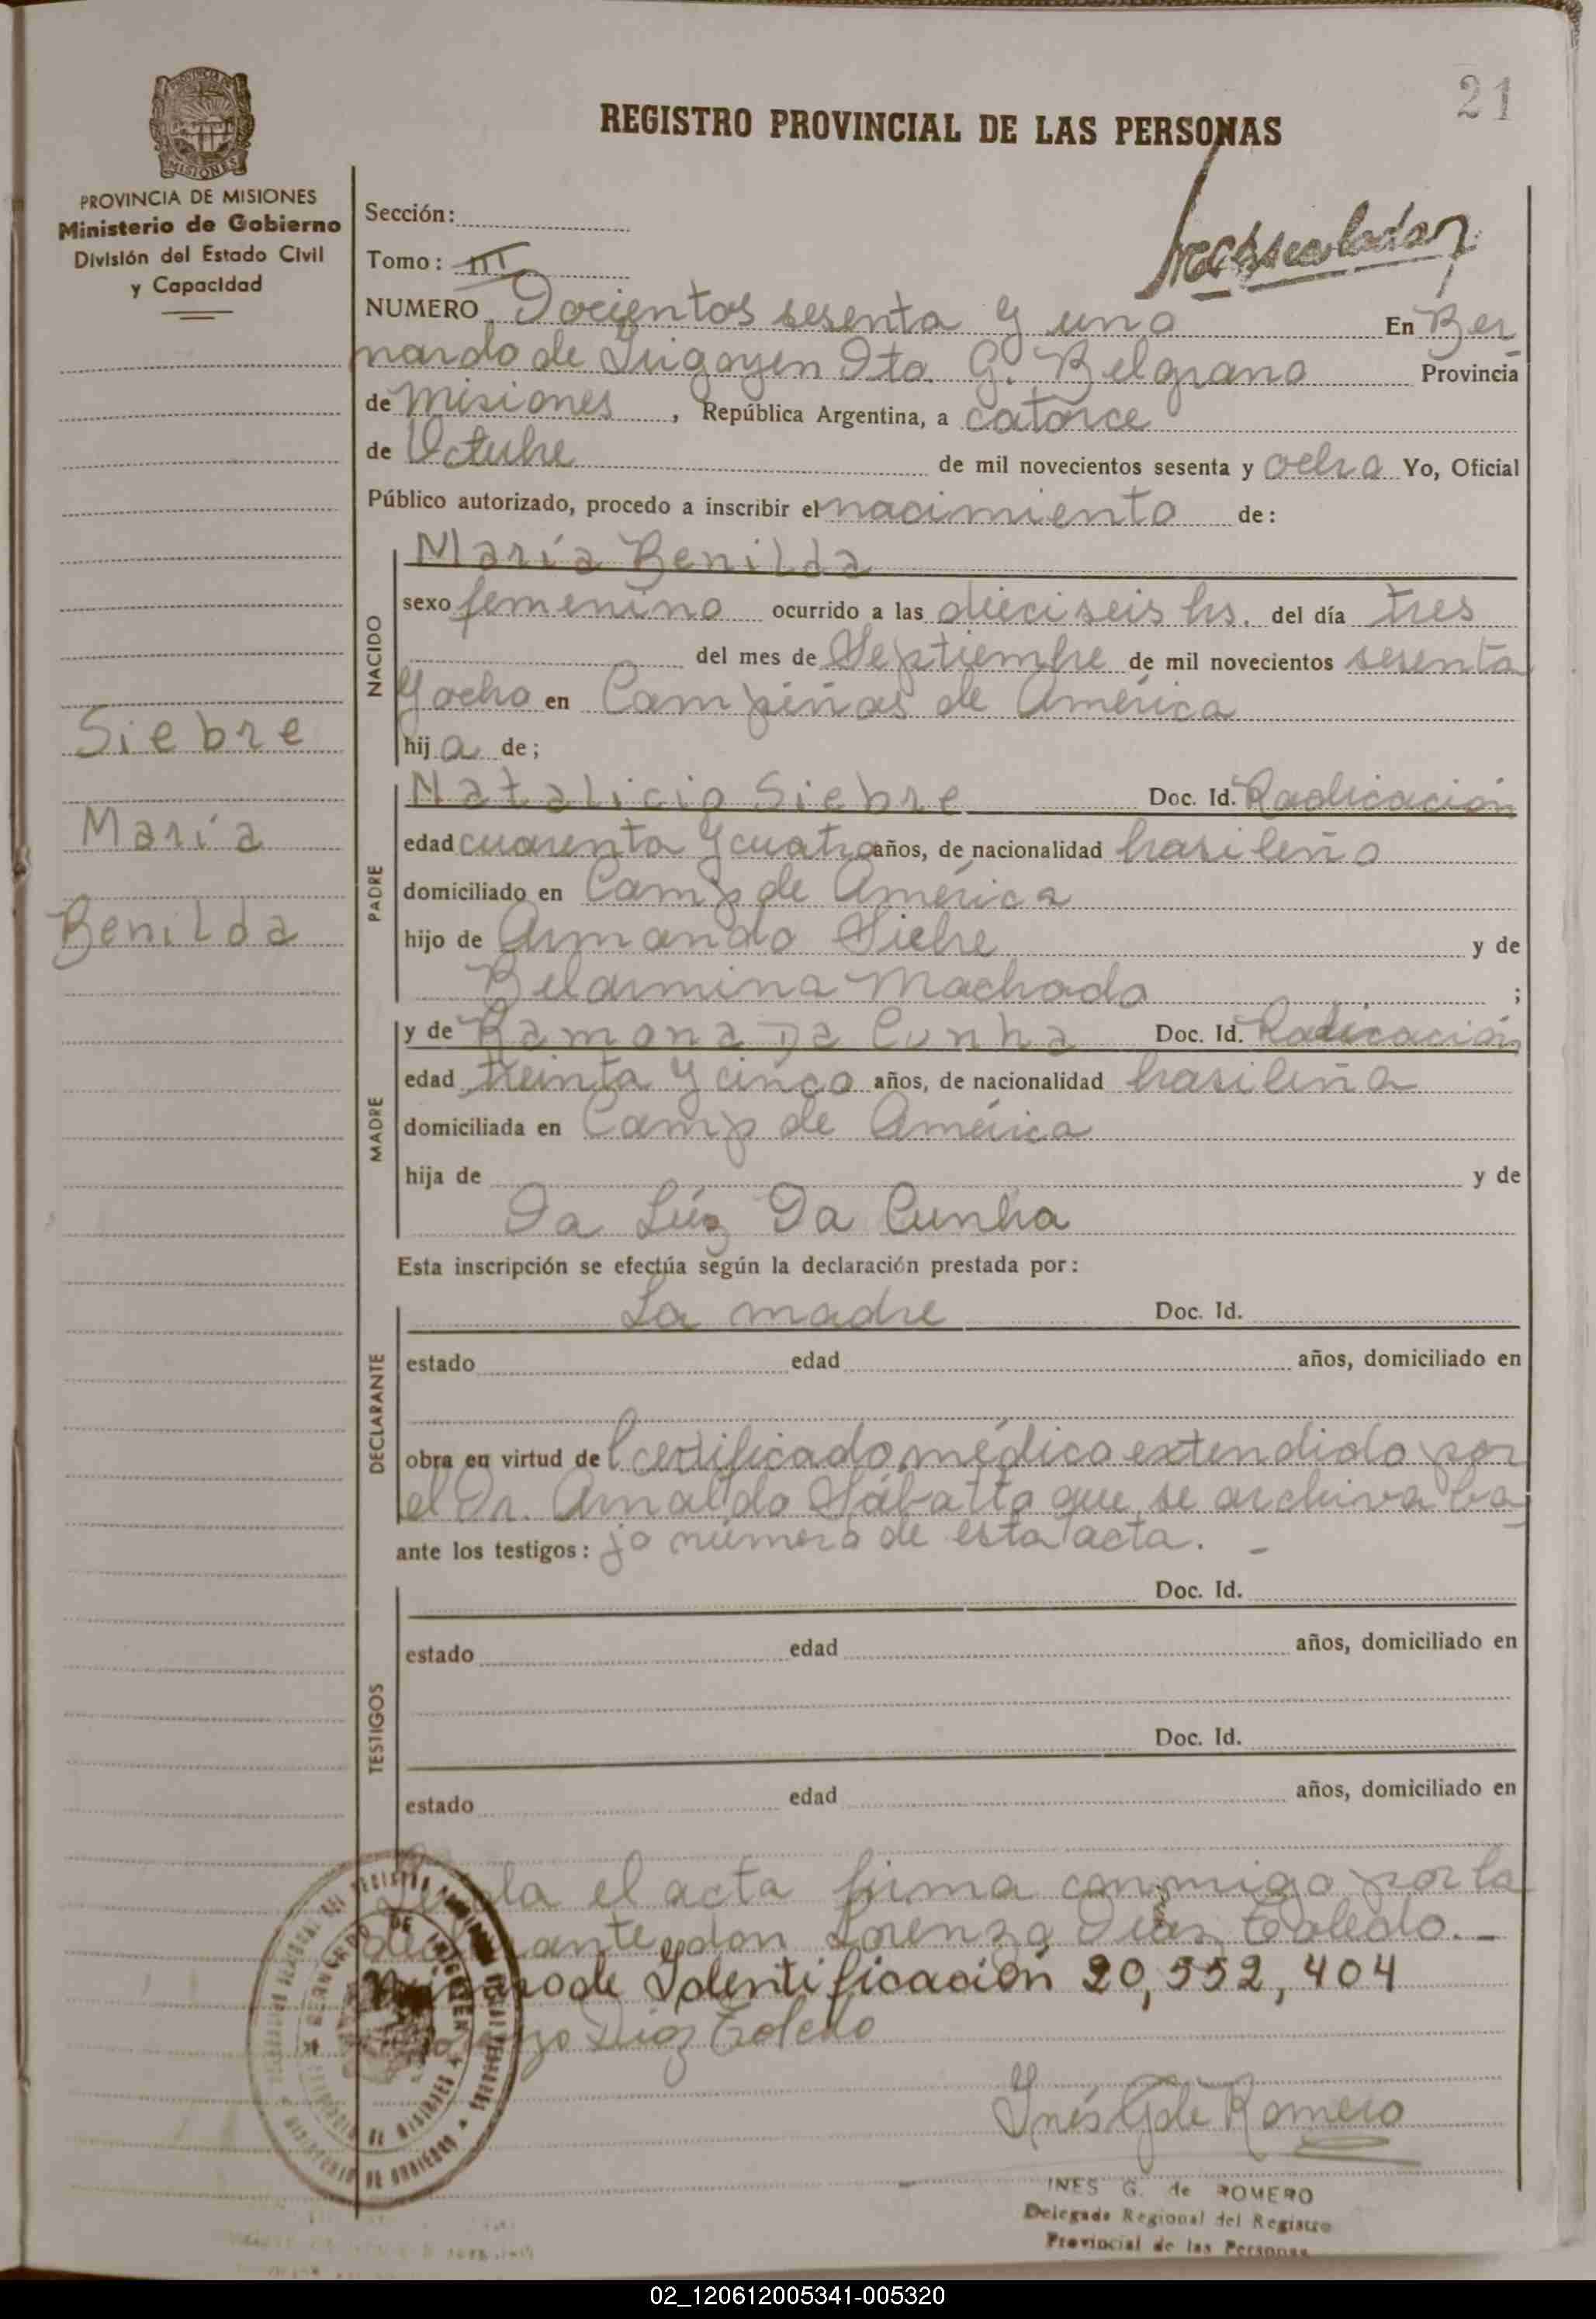 21
REGISTRO PROVINCIAL DE LAS PERSONAS
PROVINCIA DE MISIONES
Ministerio de Gobierno
División del Estado Civil
y Capacidad
Sección:
Tomo: III
NUMERO Docientos sesenta y uno En Ber
nardo de Irigoyen Dto. G. Belgrano Provincia
de Misiones, República Argentina, a catorce
de Octubre de mil novecientos sesenta y ocho Yo, Oficial
Público autorizado, procedo a inscribir el nacimiento de:
NACIDO
María Benilda
sexo femenino ocurrido a las dieciseis hs. del día tres
del mes de Septiembre de mil novecientos sesenta
y ocho en Campiñas de América
hija de;
Siebre
María
Benilda
PADRE
Natalicio Siebre Doc. Id. Radicación
edad cuarenta y cuatro años, de nacionalidad brasileño
domiciliado en Camp de América
hijo de Armando Siebre y de
Belarmina Machado ;
MADRE
y de Ramona Da Cunha Doc. Id. Radicación
edad treinta y cinco años, de nacionalidad brasileña
domiciliada en Camp de América
hija de y de
Da Lúz Da Cunha
Esta inscripción se efectúa según la declaración prestada por:
DECLARANTE
La madre Doc. Id.
estado edad años, domiciliado en
obra en virtud del certificado médico extendido por
el Dr. Arnaldo Sábatto que se archiva ba
ante los testigos: jo número de esta acta. -
TESTIGOS
Doc. Id.
estado edad años, domiciliado en
Doc. Id.
estado edad años, domiciliado en
el acta firma conmigo por la
don Lorenzo Díaz Toledo. -
de Identificación 20,552,404
Díaz Toledo
Inés G de Romero
INES G. de ROMERO
Delegada Regional del Registro
Provincial de las Personas
02_120612005341-005320